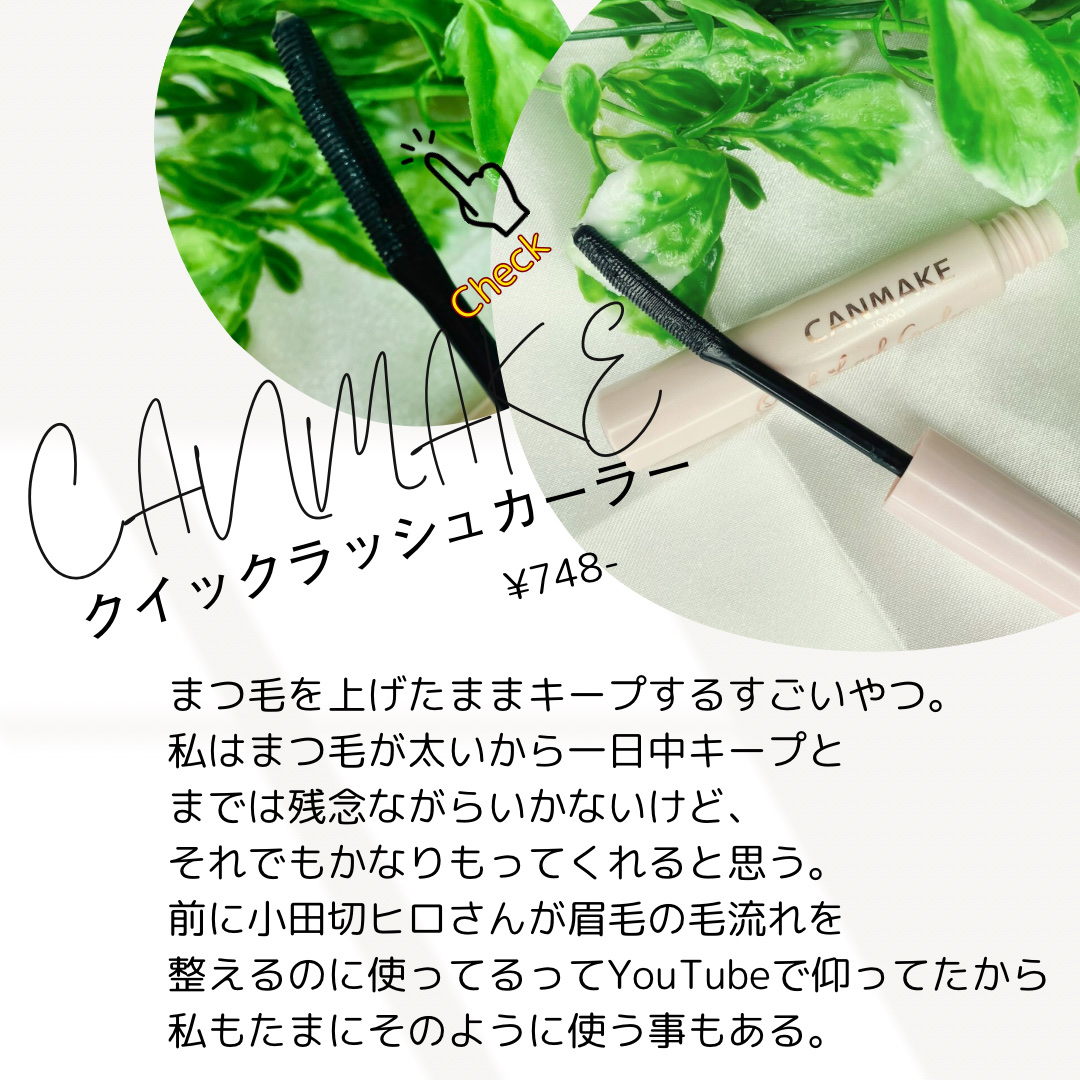 Check
CANMAKE
TOKYO
CANMAKE
クイックラッシュカーラー
¥748-
まつ毛を上げたままキープするすごいやつ。
私はまつ毛が太いから一日中キープと
までは残念ながらいかないけど、
それでもかなりもってくれると思う。
前に小田切ヒロさんが眉毛の毛流れを
整えるのに使ってるってYouTubeで仰ってたから
私もたまにそのように使う事もある。